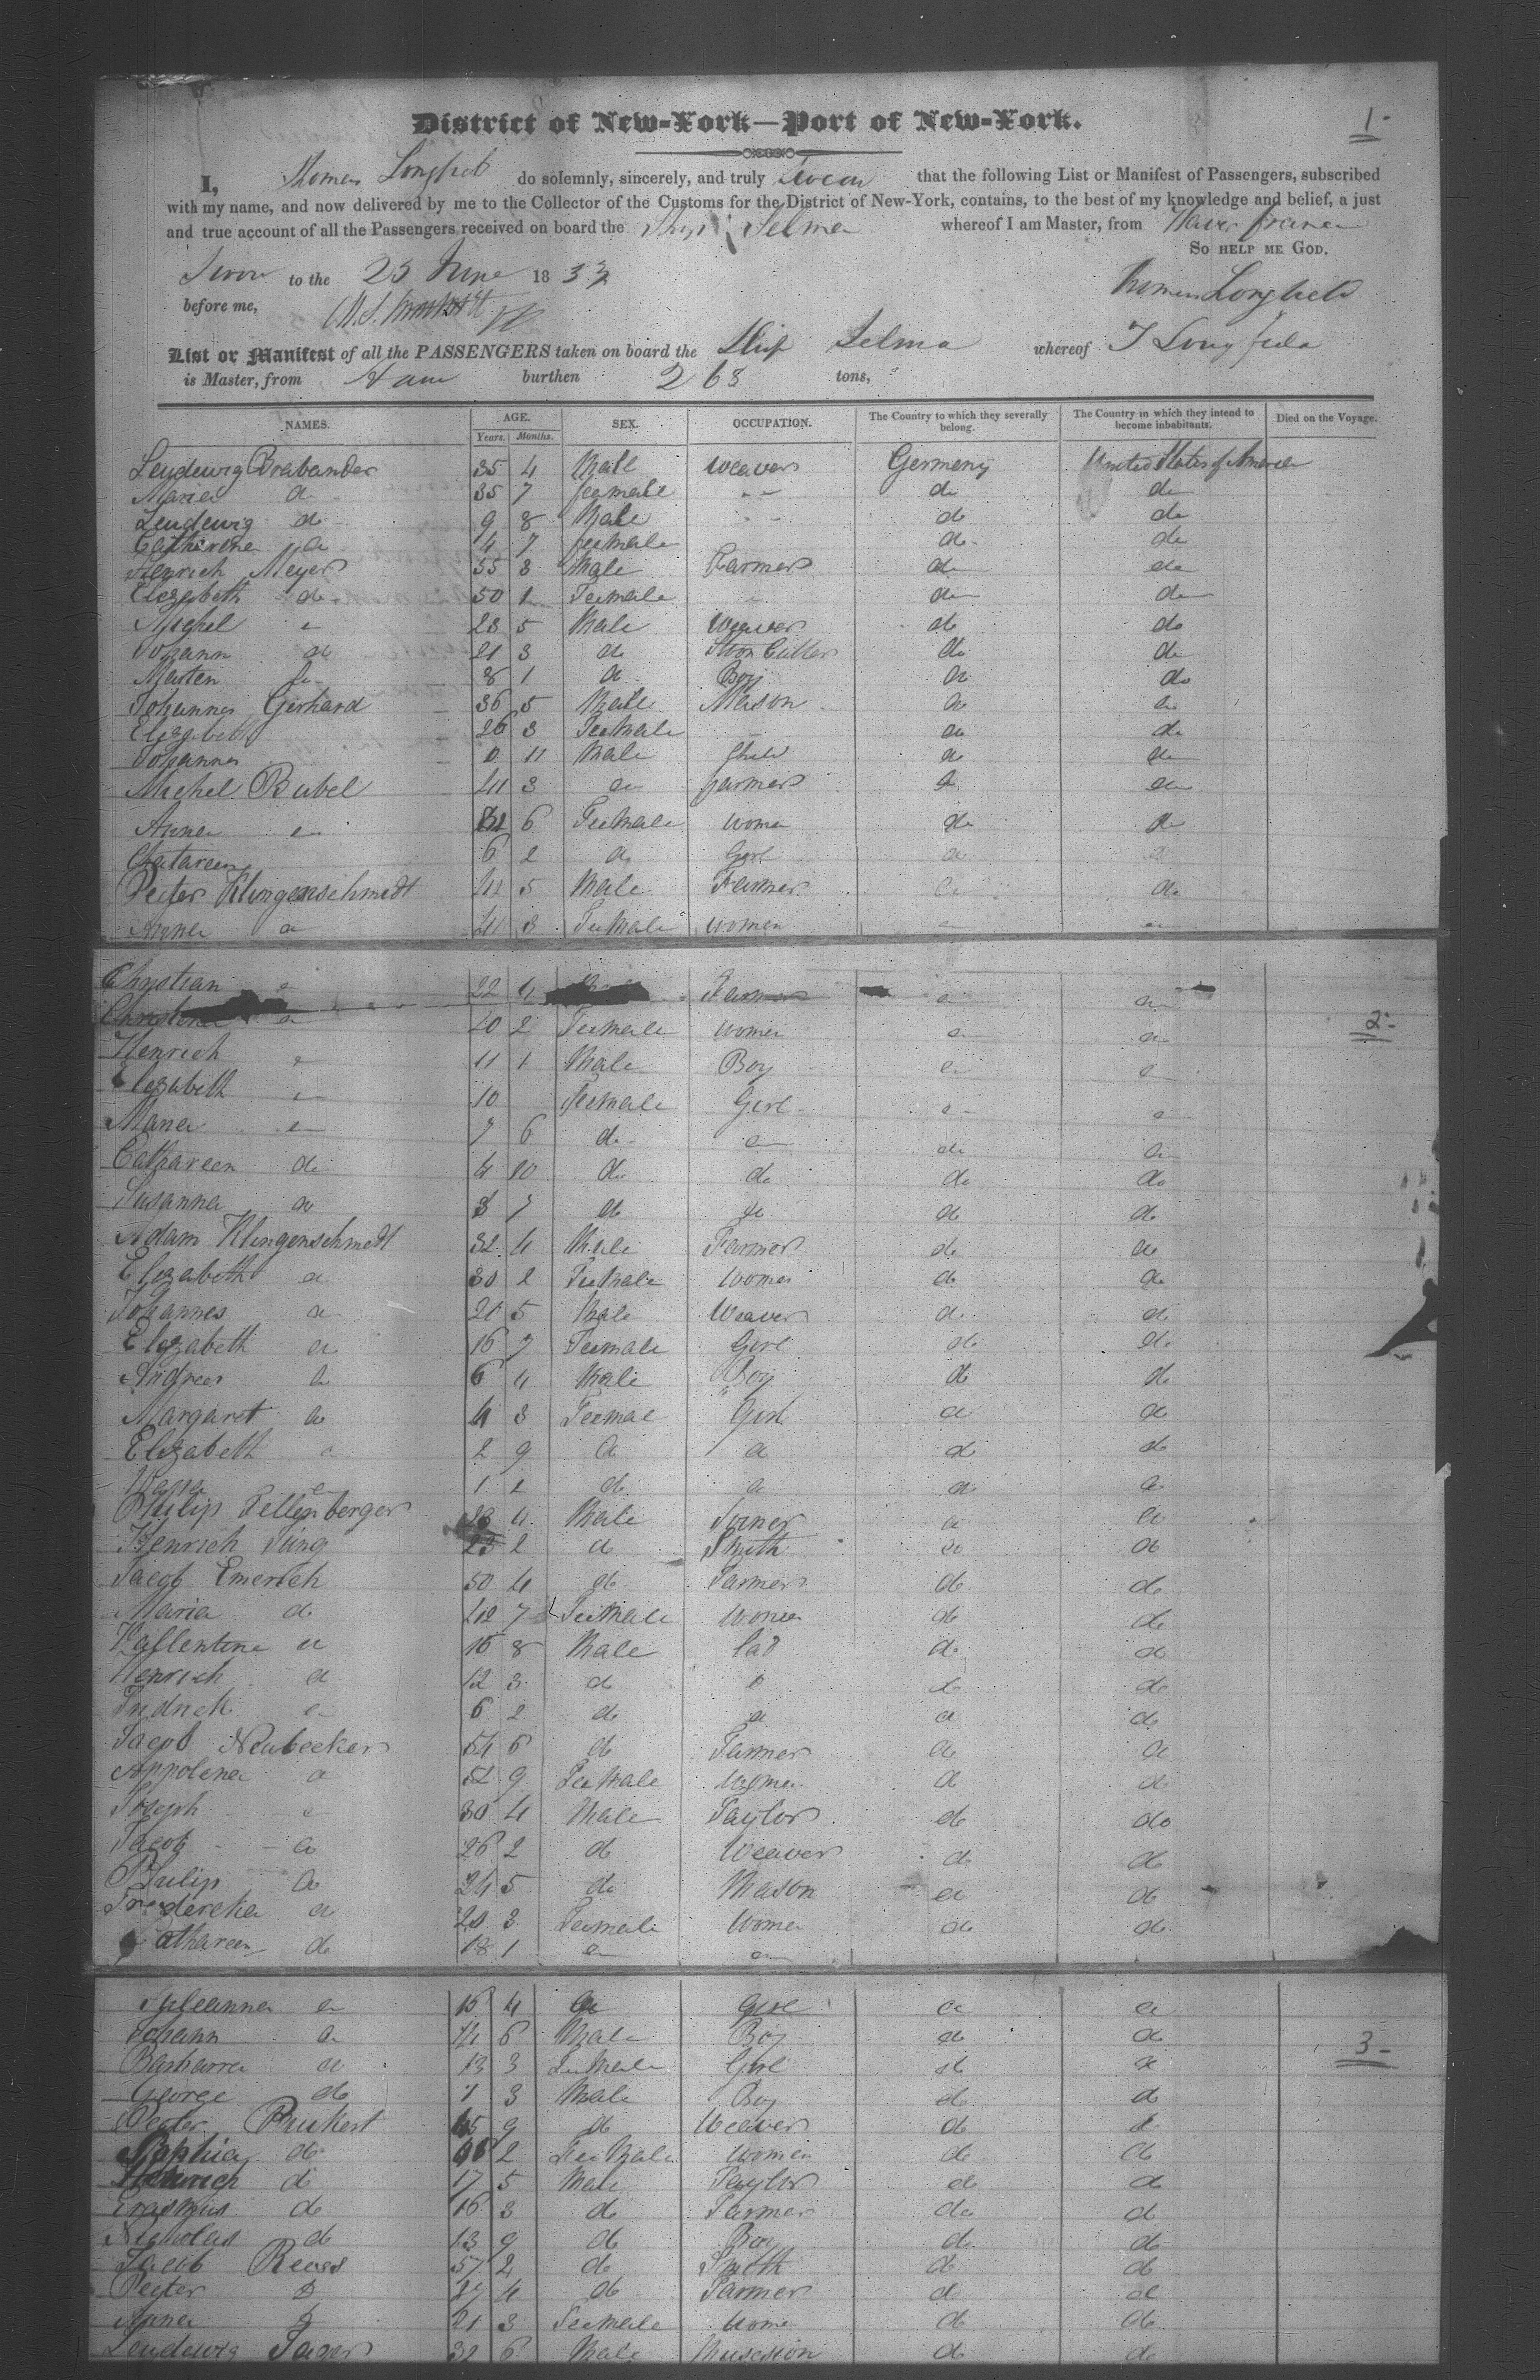 District of New-York—Port of New-York.
1-
I, Thomas Longfield do solemnly, sincerely, and truly Swear that the following List or Manifest of Passengers, subscribed
with my name, and now delivered by me to the Collector of the Customs for the District of New-York, contains, to the best of my knowledge and belief, a just
and true account of all the Passengers received on board the Ship Selma whereof I am Master, from Havre france
So HELP ME GOD.
Sworn to the 25 June 183
before me,
Thomas Longfield
List or Manifest of all the PASSENGERS taken on board the Ship Selma whereof T Longfield
is Master, from burthen 268 tons,
NAMES. AGE. SEX. OCCUPATION. The Country to which they severally belong. The Country in which they intend to become inhabitants. Died on the Voyage.
Years. Months.
Leudewig Brabander 35 4 Male Weaver Germeny United States of America
Maria do 35 7 feemale do do
Leudewig do 9 8 Male do do
Catherine do 4 7 feemale do do
Henrich Meyer 55 3 Male Farmer do do
Elezebeth do 50 1 Feemale do do
Michel do 23 5 Male Weaver do do
Johann do 21 3 do Ston Cutter do do
Marten do 8 1 do Boy do do
Johannes Gerhard 36 5 Male Mason do do
Elezebeth 26 3 Feemale do do
Johannes 0 11 Male Child do do
Michel Bubel 41 3 do farmer do do
Anna do 6 Feemale Women do do
Catareen 6 2 do Gerl do do
Peeter Klingenschmedt 42 5 Male Farmer do do
Anna do 41 3 Feemale women do do
2-
Christian do 22 4 Farmer do do
Christena do 20 2 Feemale women do do
Henrich do 11 1 Male Boy do do
Elezabeth do 10 feemale Gerl do do
Maria do 7 6 do do do do
Cathareen do 4 10 do do do do
Susanna do 3 7 do do do do
Adam Klingenschmedt 32 4 Male Farmer do do
Elezabeth do 30 2 Feemale Women do do
Johannes do 21 5 Male Weaver do do
Elezabeth do 16 7 Feemale Gerl do do
Andreas do 6 4 Male Boy do do
Margaret do 4 3 Feemae Gerl do do
Elezabeth do 2 9 do do do do
Maria do 1 2 do do do do
Philip Fellenberger 4 Male Joiner do do
Henrich Jung 23 2 do Smith do do
Jacob Emerich 50 4 do Farmer do do
Maria do 42 7 Feemale Women do do
Vallentine do 15 8 Male Lad do do
Henrich do 12 3 do do do do
Fridrich do 6 2 do do do do
Jacob Neubecker 54 6 do Farmer do do
Appolena do 52 9 Feemale Women do do
Joseph do 30 4 Male Taylor do do
Jacob do 26 2 do Weaver do do
Philip do 24 5 do Mason do do
Fredereka do 20 3 Feemale Women do do
Cathareen do 18 1 do do
3-
Juleanna do 15 4 do Gerl do do
Johann do 14 6 Male Boy do do
Barbarra do 13 3 Feemale Gerl do do
George do 7 3 Male Boy do do
Peeter 45 9 do Weaver do do
Sophia do 2 Feemale women do do
Henrich do 17 5 Male Taylor do do
Erasmus do 16 3 do Farmer do do
Nicholas do 13 9 do Boy do do
Jacob Reass 57 2 do Smith do do
Peeter D 27 4 do Farmer do do
Anna D 21 3 Feemale Wome do do
Leudewig 32 6 Male Musecion do do